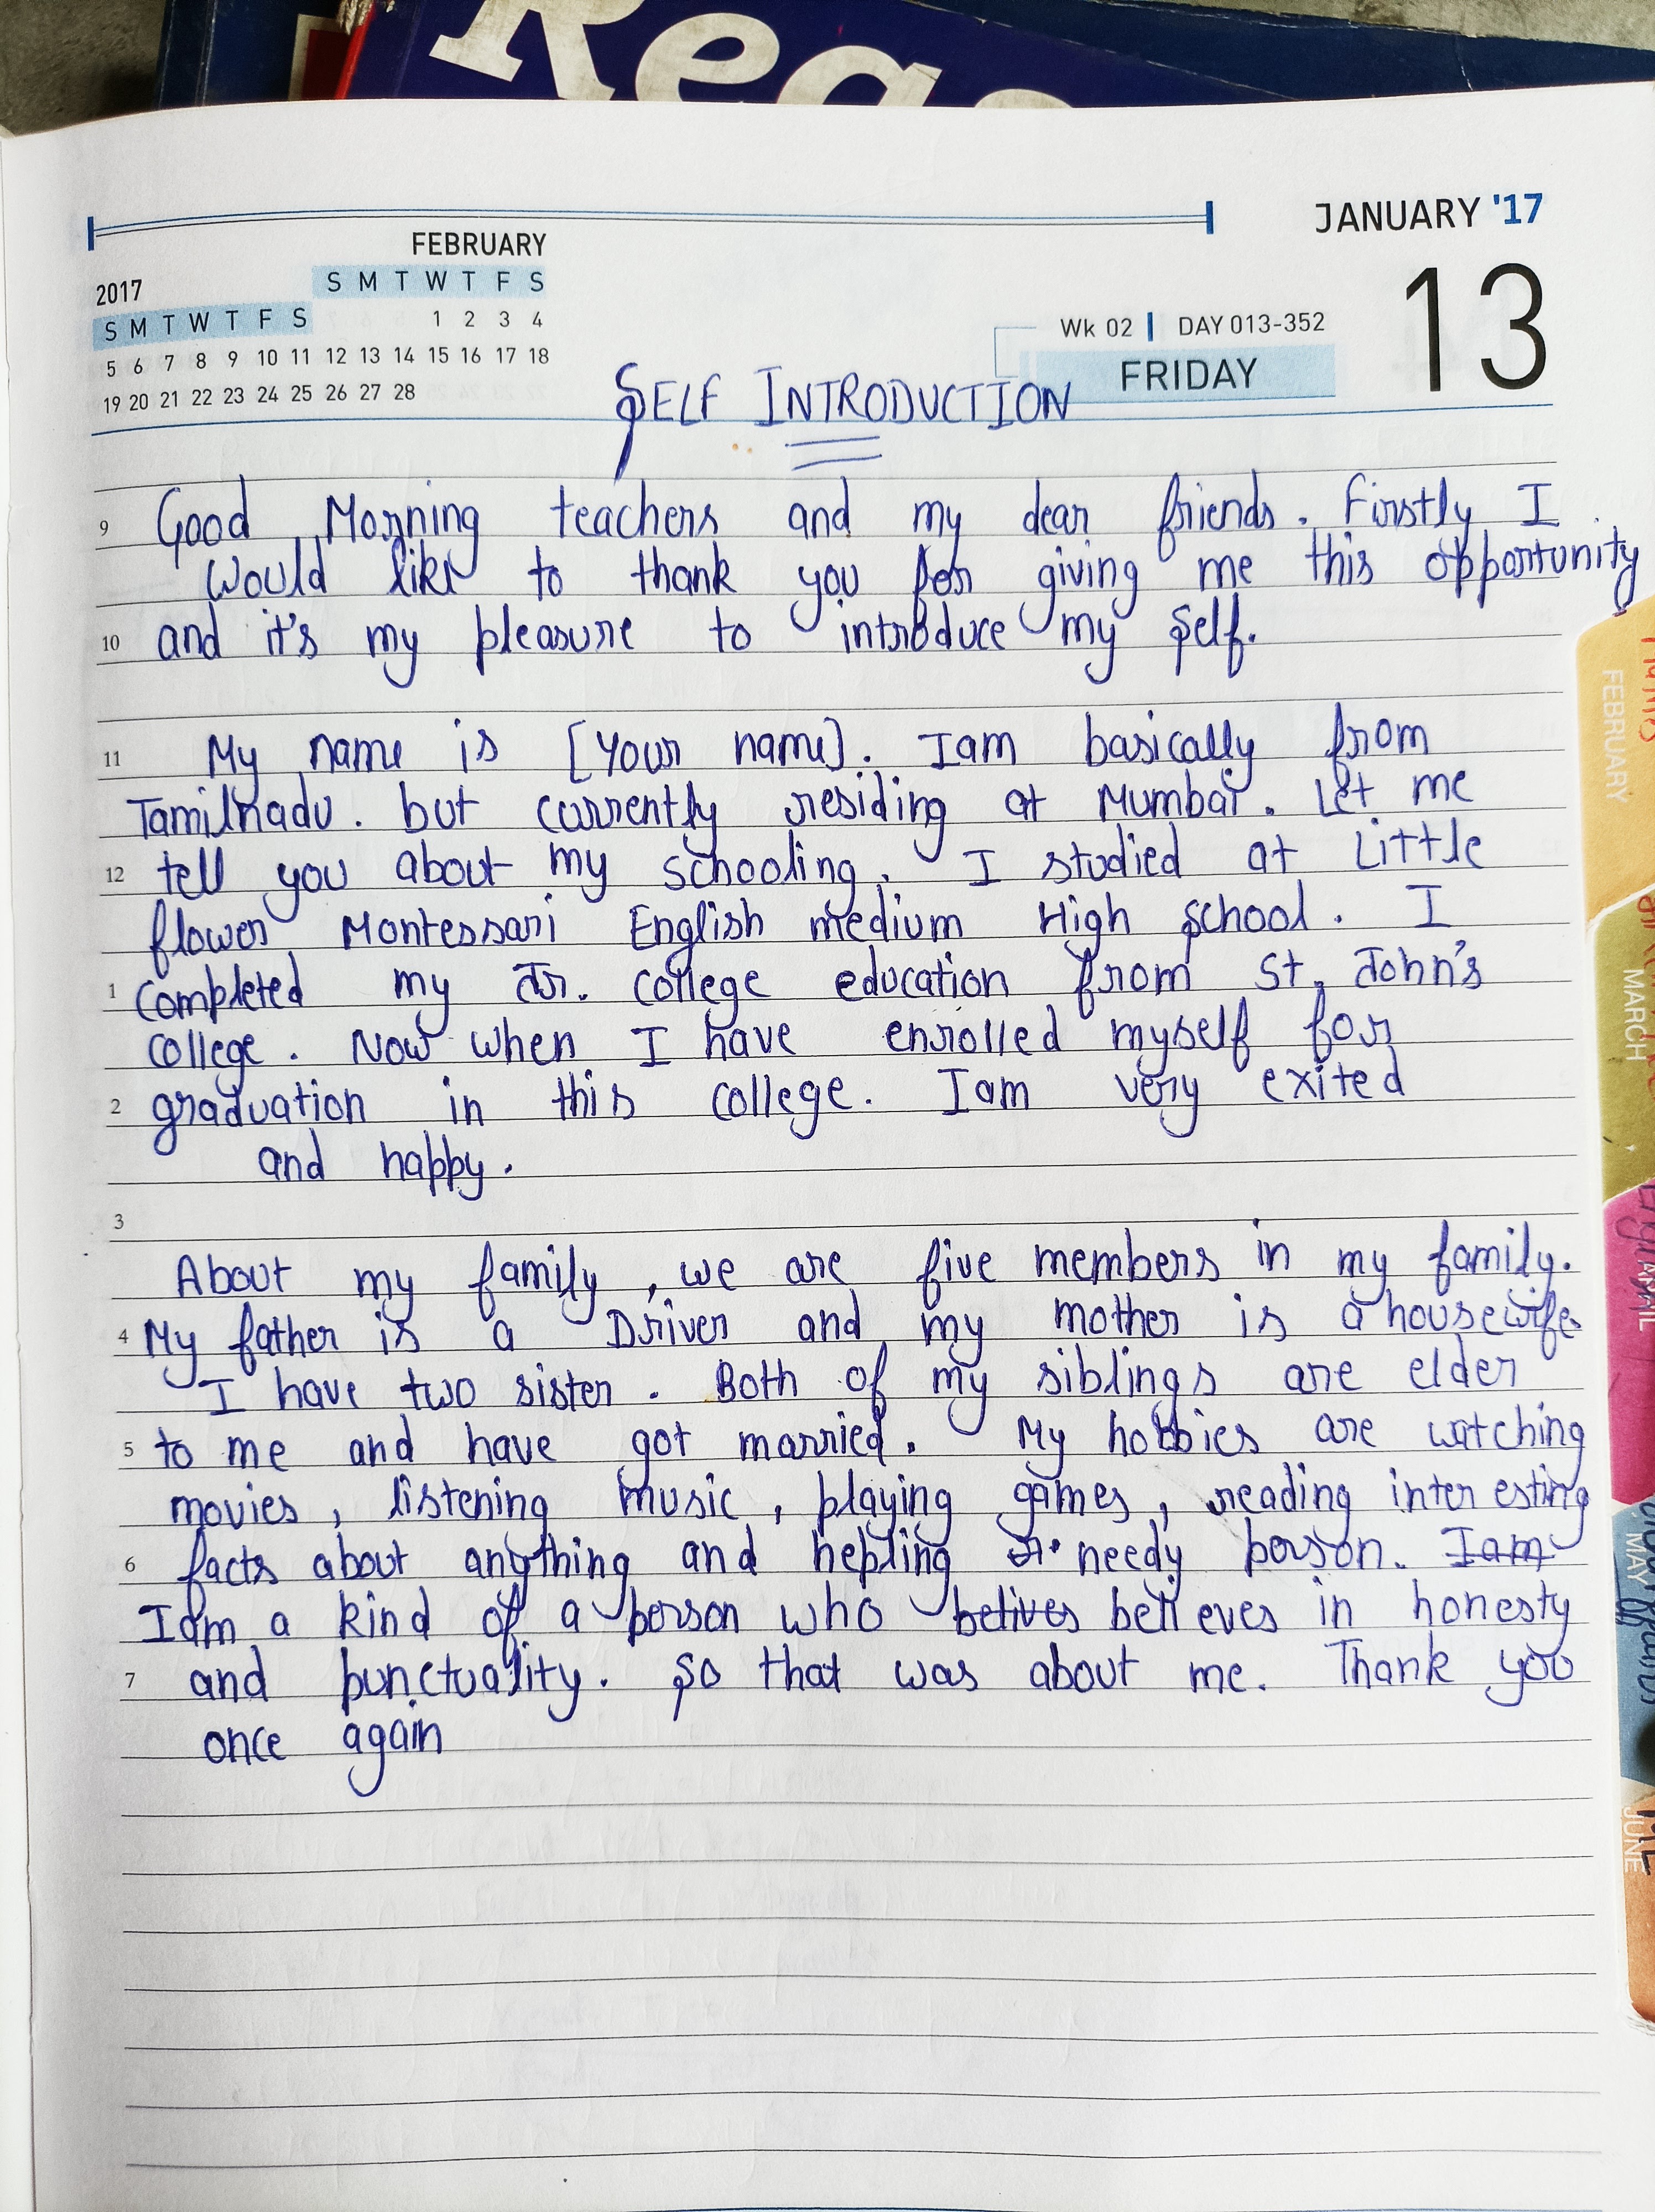 Reas
JANUARY '17
13
FEBRUARY
2017
S M T W T F S
S M T W T F S
1 2 3 4
5 6 7 8 9 10 11 12 13 14 15 16 17 18
19 20 21 22 23 24 25 26 27 28
Wk 02 | DAY 013-352
FRIDAY
SELF INTRODUCTION
9 Good Morning teachers and my dear friends. Firstly I
would like to thank you for giving me this opportunity
10 and it's my pleasure to introduce my self.
11 My name is [Your name]. Iam basically from
Tamilnadu. but currently residing at Mumbai. Let me
12 tell you about my schooling. I studied at Little
flower Montessari English medium High school. I
1 completed my Jr. college education from St. John's
college. Now when I have enrolled myself for
2 graduation in this college. Iam very exited
and happy.
3
About my family, we are five members in my family.
4 My father is a Driver and my mother is a housewife.
I have two sister. Both of my siblings are elder
5 to me and have got married. My hobbies are watching
movies, listening music, playing games, reading interesting
6 facts about anything and hepling needy person. Iam
Iam a kind of a person who betives believes in honesty
7 and punctuality. So that was about me. Thank you
once again
FEBRUARY
MARCH
APRIL
MAY
JUNE